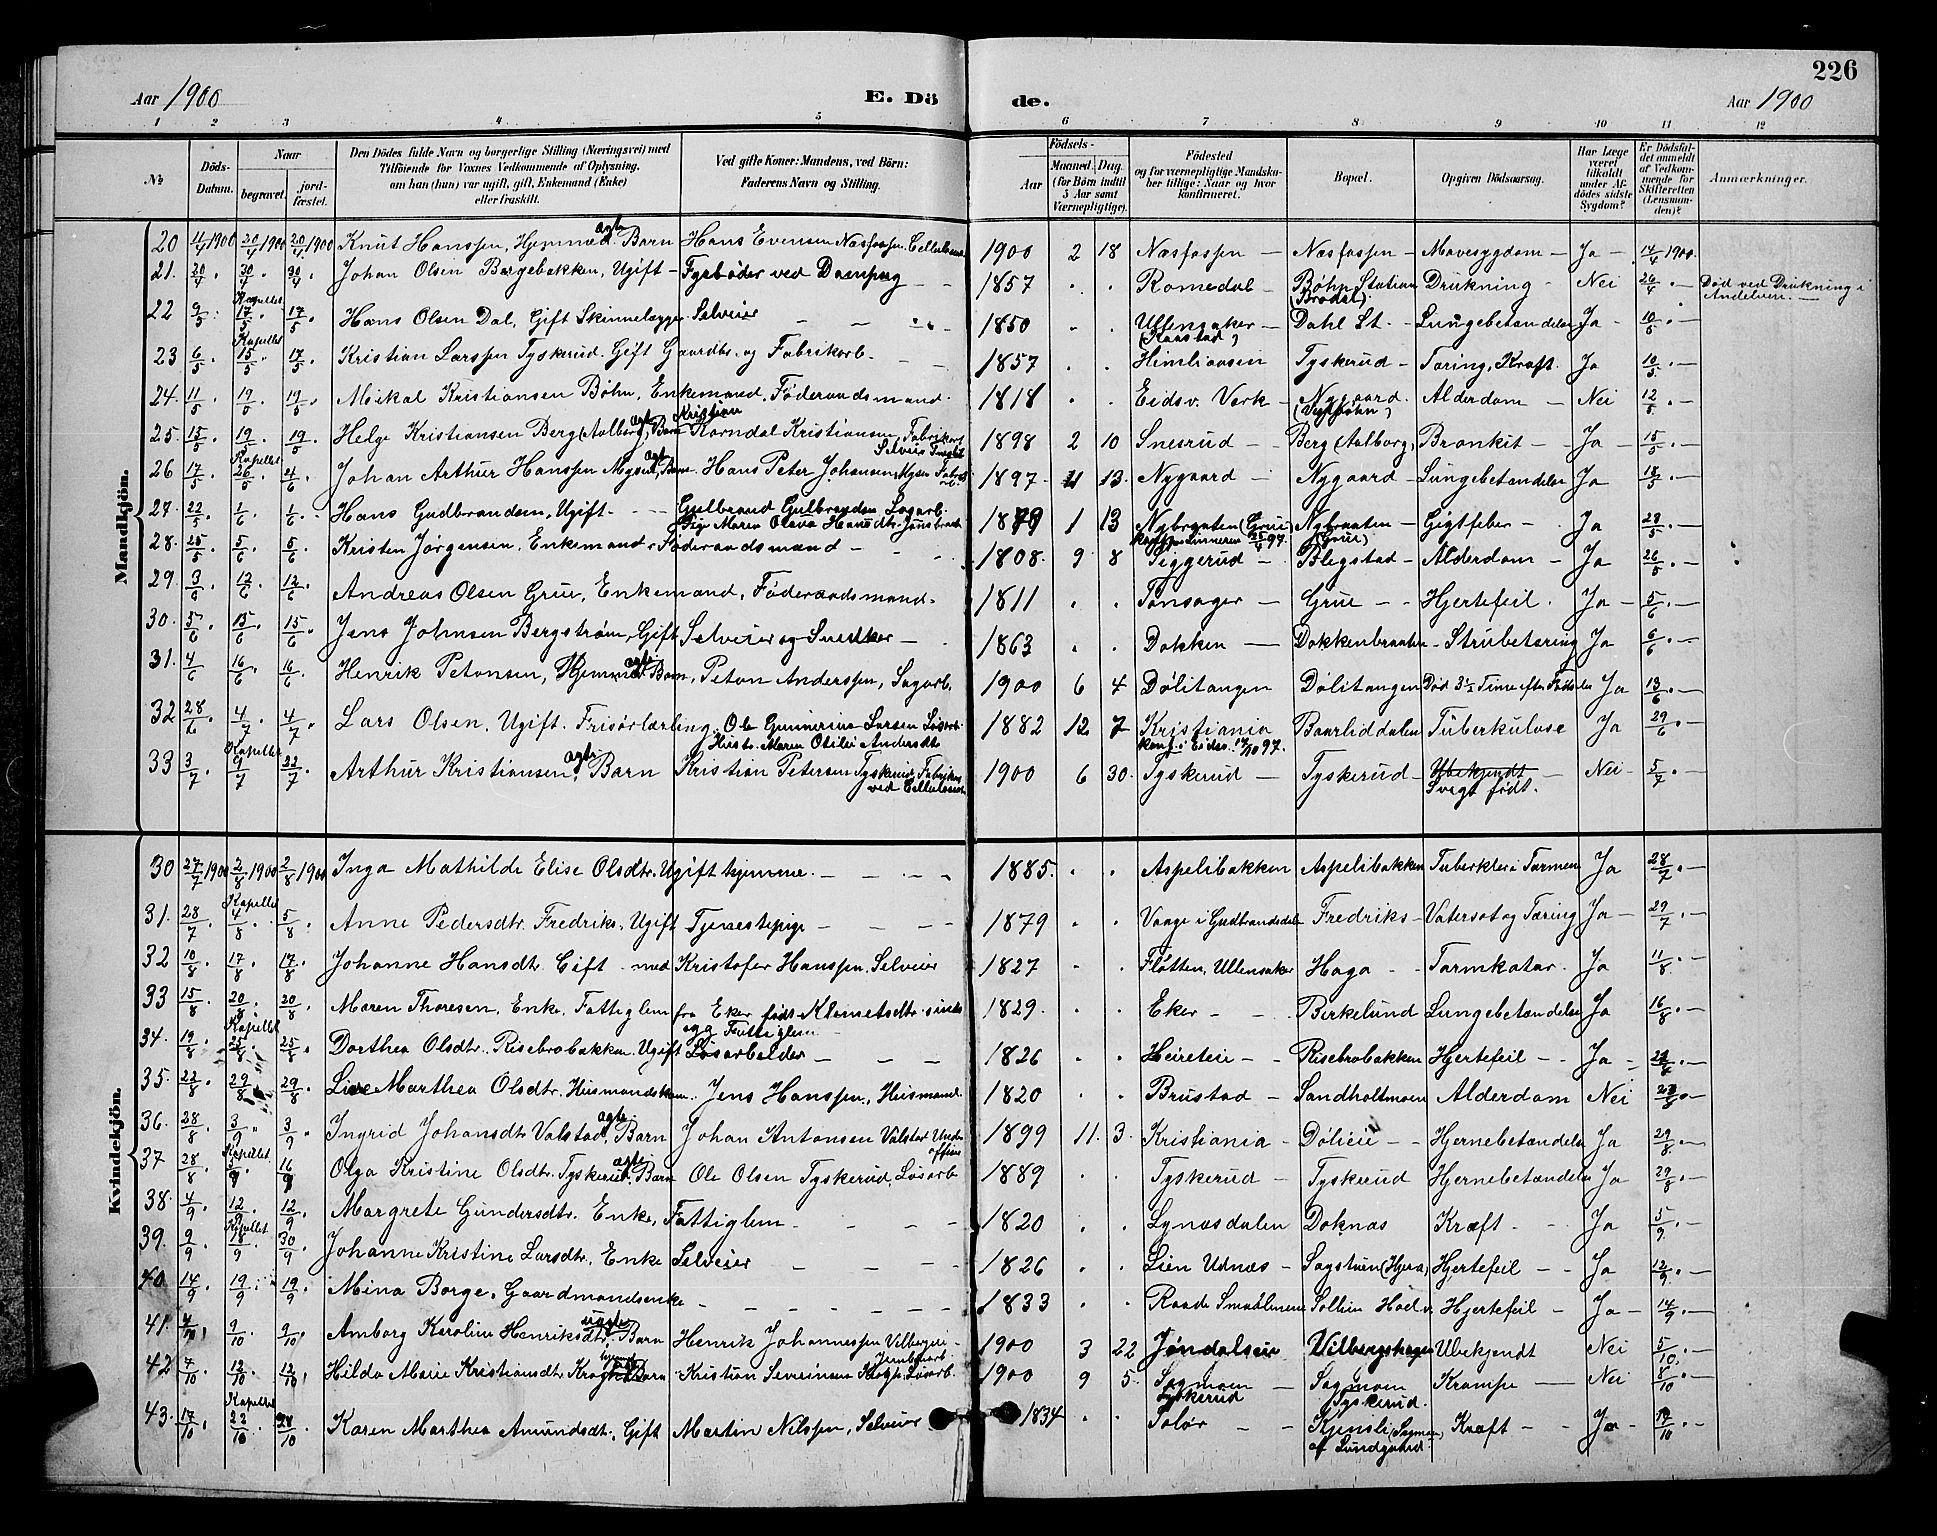 226
Aar 1900 E. Dö de. Aar 1900
1 2 3 4 5 6 7 8 9 10 11 12
№ Döds-Datum. Naar begravet. jordfæstet. Den Dödes fulde Navn og borgerlige Stilling (Næringsvei) med Tilföiende for Voxnes Vedkommende af Oplysning, om han (hun) var ugift, gift, Enkemand (Enke) eller fraskilt. Ved gifte Koner: Mandens, ved Börn: Faderens Navn og Stilling. Födsels- Aar Maaned. Dag. (for Börn indtil 5 Aar samt Værnepligtige). Födested og for værnepligtige Mandskaber tillige: Naar og hvor konfirmeret. Bopæl. Opgiven Dödsaarsag. Har Læge været tilkaldt under Afdödes sidste Sygdom? Er Dödsfaldet anmeldt af Vedkommende for Skifteretten (Lensmanden)? Anmærkninger.
Mandkjön.
20 11/4 1900 20/4 1900 20/4 1900 Knut Hanssen, Hjemmed. ægte Barn Hans Evensen Næsfossen Cellulosearb. 1900 2 18 Næsfossen — Næsfossen — Mavesygdom — Ja — 14/4 1900
21. 20/4 30/4 30/4 Johan Olsen Borgebakken, Ugift — Fyrbøder ved Dampsag — — 1857 Romedal — Bøhn Station (Brodal) Drukning — Nei 26/4 — Død ved Drukning i Andelven. —
22 9/5 Kapellet 17/5 17/5 Hans Olsen Dal, Gift Skinnelægger. Selveier — — 1850 Ullensaker — (Kaastad) Dahl St. — Lungebetændelse Ja — 10/5 —
23 6/5 Kapellet 15/5 17/5 Kristian Larssen Tyskerud. Gift Gaardbr. og Fabrikarb. — 1857 Himliaasen Tyskerud — Tæring, Kræft. Ja 10/5 —
24. 11/5 19/5 19/5 Mikal Kristiansen Bøhn, Enkemand, Føderaadsmand. 1818 Eidsv. Værk — Nygaard (Vestbøhn) Alderdom — Nei 12/5 —
25. 15/5 19/5 19/5 Helge Kristiansen Berg (Aalborg) ægte Barn Kristian Korndal Kristiansen, Fabrikarb. Selveier 1898 2 10 Snesrud — Berg (Aalborg) Bronkit — Ja — 15/5 —
26 17/5 Kapellet 26/5 4/6 Johan Arthur Hanssen Mysen, ægte Barn. Hans Peter Johansen Mysen Fabrikarb. 1897 11 13. Nygaard — Nygaard — Lungebetændelse Ja 18/5 —
27. 22/5 1/6 1/6 Hans Gudbrandsen, Ugift — — Gulbrand Gulbrandsen Sagarb. Pige Maren Olava Hansdtr. 1879 1 13 Nybraaten (Grue) Nybraaten (Grue) Gigtfeber — Ja 28/5 —
28. 25/5 5/6 5/6 Kristen Jørgensen, Enkemand, Føderaadsmand — 1808. 9 8 Tiggerud — Blegstad — Alderdom — Ja 26/5 —
29. 3/6 12/6 12/6 Andreas Olsen Grue, Enkemand, Føderaadsmand. 1811 Tønsager — Grue — Hjertefeil. Ja — 5/6 —
30. 5/6 15/6 15/6 Jens Johnsen Bergstrøm, Gift Selveier og Snedker — 1863 Dokken — Dokkenbraaten — Strubetæring Ja 6/6 —
31. 4/6 16/6 16/6 Henrik Petersen, Hjemmed. ægte Barn, Petter Anderssen, Sagarb. 1900 6 4 Dølitangen Dølitangen Død 3 1/2 Time efter Fødselen Ja 13/6 —
32 28/6 4/7 4/7 Lars Olsen, Ugift. Frisørlærling. Ole Gunnerius Larsen Løsarb. Hustr. Maren Otilie Andersdtr. 1882 12 7 Kristiania konf. i Eidsv. 17/10 97. Baarliddalen Tuberkulose Ja 29/6 —
33 3/7 Kapellet 9/7 22/7 Arthur Kristiansen, ægte Barn Kristian Petersen Tyskerud, Fabrikarb. ved Cellulosen 1900 6 30. Tyskerud — Tyskerud — Ubekjendt Svagt født. Nei — 5/7 —
Kvindekjön.
30 27/7 1900 2/8 1900 2/8 1900 Inga Mathilde Elise Olsdtr. Ugift hjemme. — — 1885. Aspelibakken Aspelibakken Tuberkler i Tarmen Ja 28/7 —
31. 28/7 Kapellet 4/8 5/8 Anne Pedersdtr. Fredriks. Ugift Tjenestepige — — 1879 Vaage i Gudbrandsdalen Fredriks — Vatersot og Tæring Ja — 29/7 —
32 10/8 17/8 17/8 Johanne Hansdtr. Gift — med Kristofer Hanssen, Selveier 1827 Fløtten, Ullensaker Haga — Tarmkatar. Ja 11/8 —
33 15/8 20/8 20/8 Maren Thoresen, Enke. Fattiglem fra Eker født Klemetsdtr. Fattiglem 1829. Eker — Birkelund Lungebetændelse Ja 16/8 —
34. 19/8 Kapellet 25/8 25/8 Dorthea Olsdtr. Risebrobakken. Ugift Løsarbeider — 1826 Heireteie — Risebrobakken Hjertefeil — Ja —
35. 22/8 29/8 29/8 Lise Marthea Olsdtr. Husmandskone. Jens Hanssen, Husmand. 1820 Brustad — Sandholtmoen Alderdom Nei
36. 28/8 3/9 3/9 Ingrid Johansdtr. Valstad, ægte Barn Johan Antonsen Valstad Underofficer 1899 11. 3. Kristiania — Dølieie — Hjernebetændelse Ja 29/8 —
37 28/8 Kapellet 3/9 16/9 Olga Kristine Olsdtr. Tyskerud. ægte Barn Ole Olsen Tyskerud, Løsarb 1889 Tyskerud — Tyskerud Hjernebetændelse Ja 29/8 —
38. 4/9 12/9 12/9 Margrete Gundersdtr. Enke, Fattiglem — 1820 Lynæsdalen Doknæs Kræft — Ja 5/9 —
39. 9/9 Kapellet 18/9 30/9 Johanne Kristine Larsdtr, Enke Selveier — 1826 Lien Udnæs — Sagstuen (Hjera) Hjertefeil — Ja 12/9 —
40. 14/9 19/9 19/9 Mina Borge. Gaardmandsenke — 1833 Raade Smaalenene Sollien Hodv. Hjertefeil — Ja — 14/9 —
41. 4/10 9/10 9/10 Amborg Karoline Henriksdtr. uægte Barn Henrik Johannessen Vilbergeie — 1900 3 22 Jøndalseie Vilbergshagen Ubekjendt Nei 5/10 —
42. 7/10 12/10 12/10 Hilda Marie Kristiansdtr. Kragh Barn Kristian Severinsen Kragh. Løsarb. 1900 9 5. Sagmoen Tyskerud — Sagmoen Tyskerud. Krampe — Nei 8/10 —
43. 17/10 Kapellet 22/10 28/10 Karen Marthea Amundsdtr. Gift Martin Nilssen, Selveier 1834 Solør — Kjensli (Sagmoen) af Lundgaard. Kræft — Ja — 19/10 —